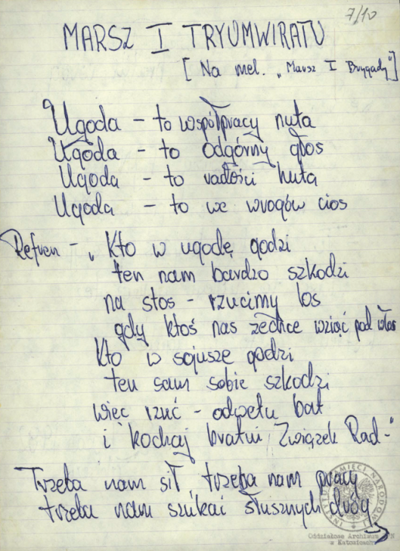 7/10
MARSZ I TRYUMWIRATU
[Na mel. „Marsz I Brygady"]
Ugoda – to współpracy nuta
Ugoda – to odgórny głos
Ugoda – to radości huta
Ugoda – to we wrogów cios
Refren – „Kto w ugodę godzi
ten nam bardzo szkodzi
na stos – rzucimy los
gdy ktoś nas zechce wziąć pod włos
Kto w sojusze godzi
ten sam sobie szkodzi
więc rzuć – odwetu bat
i kochaj bratni Związek Rad"
Trzeba nam sił, trzeba nam pracy
trzeba nam szukać słusznych dróg
INSTYTUT PAMIĘCI NARODOWEJ
Oddziałowe Archiwum IPN
w Katowicach